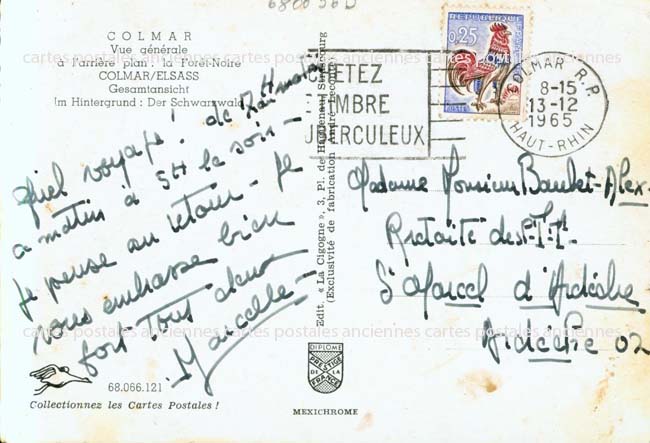 COLMAR
Vue générale
à l'arrière plan : La Forêt-Noire
COLMAR/ELSASS
Gesamtansicht
Im Hintergrund : Der Schwarzwald
quel voyage ! de 7H du matin
a matin à 5H le soir -
Je pense au retour - Je
vous embrasse bien
fort Tout deux
Marcelle -
68.066.121
Collectionnez les Cartes Postales !
Edit. « La Cigogne », 3, Pl. de Haguenau, Strasbourg
(Exclusivité de fabrication André Leconte)
DIPLOME
PRESTIGE
DE LA
FRANCE
MEXICHROME
6800 56 D
ACHETEZ
TIMBRE
TUBERCULEUX
REPUBLIQUE
0,25
POSTES
COLMAR R.P.
8-15
13-12
1965
HAUT-RHIN
Madame Monsieur Baulet-Alex-
Retraité des P.T.T
St Marcel d'Ardèche
Ardèche 07
cartes postales anciennes cartes postales anciennes cartes postales anciennes
cartes postales anciennes cartes postales anciennes cartes postales anciennes